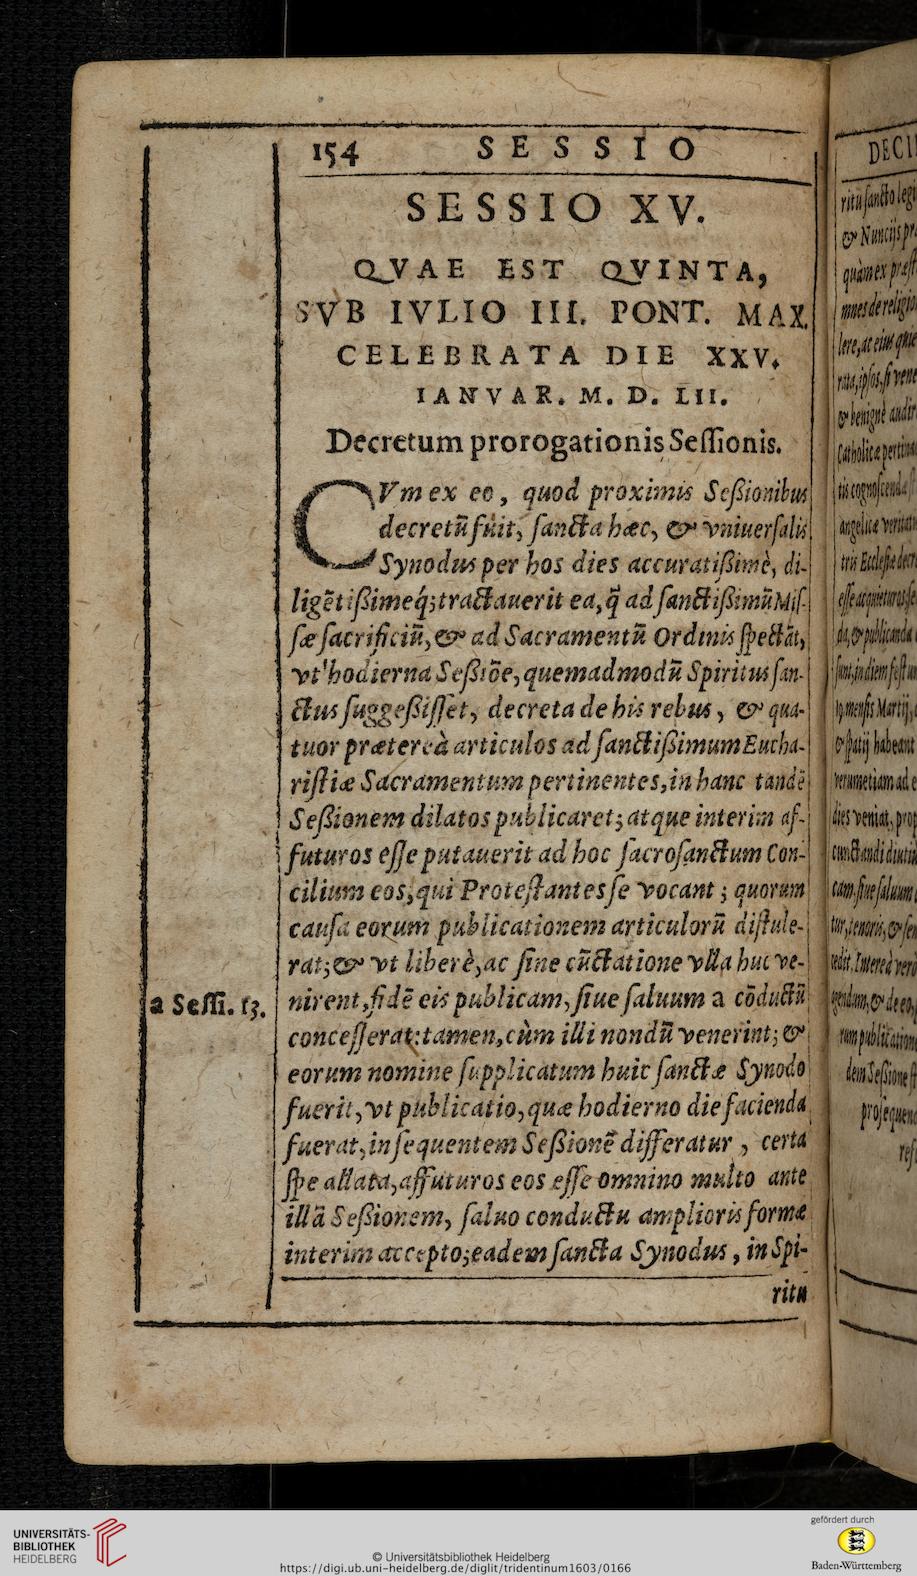 154 SESSIO
SESSIO XV.
QVAE EST QVINTA,
SVB IVLIO III. PONT. MAX.
CELEBRATA DIE XXV.
IANVAR. M. D. LII.
Decretum prorogationis Seſſionis.
CVm ex eo, quod proximis Seßionibus
decretū fuit, ſancta hæc, & vniuerſalis
Synodus per hos dies accuratißimè, di-
ligētißimeq́;tractauerit ea,q̃ ad ſanctißimū Miſ-
ſæ ſacrificiū,& ad Sacramentū Ordinis ſpectāt,
vt hodierna Seßiōe,quemadmodū Spiritus ſan-
ctus ſuggeßiſſet, decreta de his rebus, & qua-
tuor prætereà articulos ad ſanctißimum Eucha-
riſtiæ Sacramentum pertinentes,in hanc tandē
Seßionem dilatos publicaret; atque interim af-
futuros eſſe putauerit ad hoc ſacroſanctum Con-
cilium eos,qui Proteſtantes ſe vocant; quorum
cauſa eorum publicationem articulorū diſtule-
rat;& vt liberè,ac ſine cūctatione vlla huc ve-
a Seſſi. 13. nirent,fidē eis publicam, ſiue ſaluum a cōductū
conceſſerat:tamen,cùm illi nondū venerint; &
eorum nomine ſupplicatum huic ſanctæ Synodo
fuerit,vt publicatio,quæ hodierno die facienda
fuerat,in ſequentem Seßionē differatur, certa
ſpe allata,affuturos eos eſſe omnino multo ante
illā Seßionem, ſaluo conductu amplioris formæ
interim accepto;eadem ſancta Synodus, in Spi-
ritu
DECR
ritu ſancto legi
& Nuncijs pr
quàm ex præſt
mnes de religio
lere,ac eius quie
rata,ipſos,ſi vene
& benignè audir
Catholicæ pertina
angelicæ veritati
tris Eccleſiæ decr
da,& publicanda
19. menſis Martij,
& ſpatij habeant
verumetiam ad e
dies veniat, prop
cunctandi diutiù
cam,ſiue ſaluum
tur,tenoris,& ſen
cedit. Intereà verò
rum publication
dem Seßione
proſequend
UNIVERSITÄTS-
BIBLIOTHEK
HEIDELBERG
© Universitätsbibliothek Heidelberg
https://digi.ub.uni-heidelberg.de/diglit/tridentinum1603/0166
gefördert durch
Baden-Württemberg